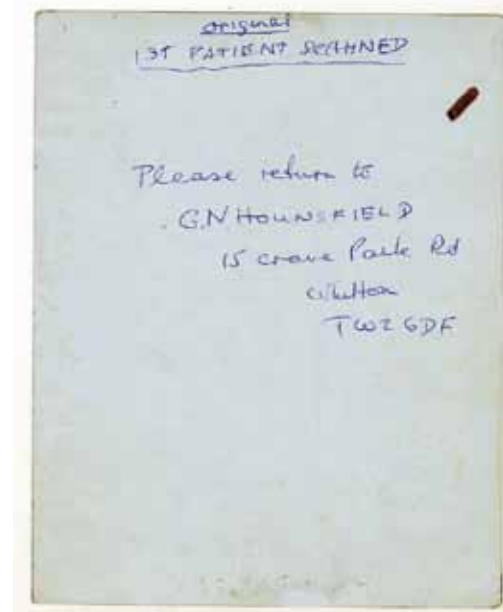 original
1ST PATIENT SCANNED
Please return to
G.N HOUNSFIELD
15 Crane Park Rd
Whitton
TW2 6DF